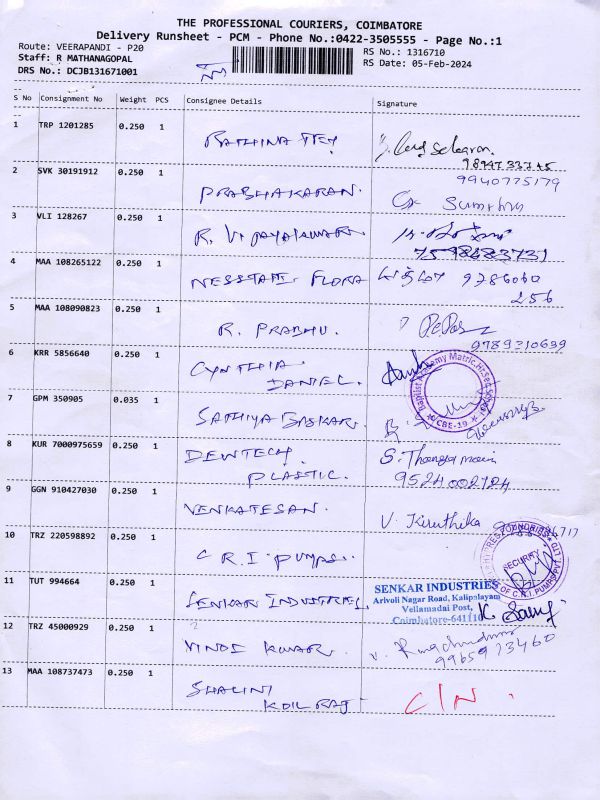 THE PROFESSIONAL COURIERS, COIMBATORE
Delivery Runsheet - PCM - Phone No.:0422-3505555 - Page No.:1
Route: VEERAPANDI - P20 RS No.: 1316710
Staff: R MATHANAGOPAL RS Date: 05-Feb-2024
DRS No.: DCJB131671001
S No Consignment No Weight PCS Consignee Details Signature
1 TRP 1201285 0.250 1
RATHINA
2 SVK 30191912 0.250 1 9940775179
PRABHAKARAN.
3 VLI 128267 0.250 1
R. VIJAYAKUMAR.
4 MAA 108265122 0.250 1
FLORA 9786060
256
5 MAA 108090823 0.250 1
R. PRABHU.
9789310639
6 KRR 5856640 0.250 1
CYNTHIA
DANIEL.
7 GPM 350905 0.035 1
SATHIYA BASKAR.
CBE-19
8 KUR 7000975659 0.250 1
DEWTECH S. Thangamani
PLASTIC. 9524002724
9 GGN 910427030 0.250 1
VENKATESAN. V. Kiruthika
10 TRZ 220598892 0.250 1
C R.I PUMPS. SECURITY
11 TUT 994664 0.250 1 SENKAR INDUSTRIES
Arivoli Nagar Road, Kalipalayam
SENKAR INDUSTRIES, Vellamadai Post,
Coimbatore-641110
12 TRZ 45000929 0.250 1
VINOE KUMAR. 9965973460
13 MAA 108737473 0.250 1
SHALINI
KOILRAJ C/N.